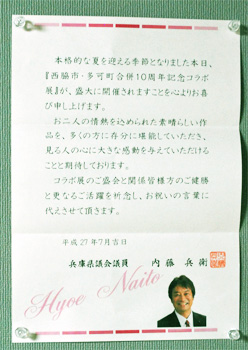 本格的な夏を迎える季節となりました本日、
『西脇市・多可町合併10周年記念コラボ
展』が、盛大に開催されますことを心よりお喜
び申し上げます。
お二人の情熱を込められた素晴らしい作
品を、多くの方に存分に堪能していただき、
見る人の心に大きな感動を与えていただける
ことと期待しております。
コラボ展のご盛会と関係皆様方のご健勝
と更なるご活躍を祈念し、お祝いの言葉に
代えさせて頂きます。
平成27年7月吉日
兵庫県議会議員 内藤兵衛
Hyoe Naito